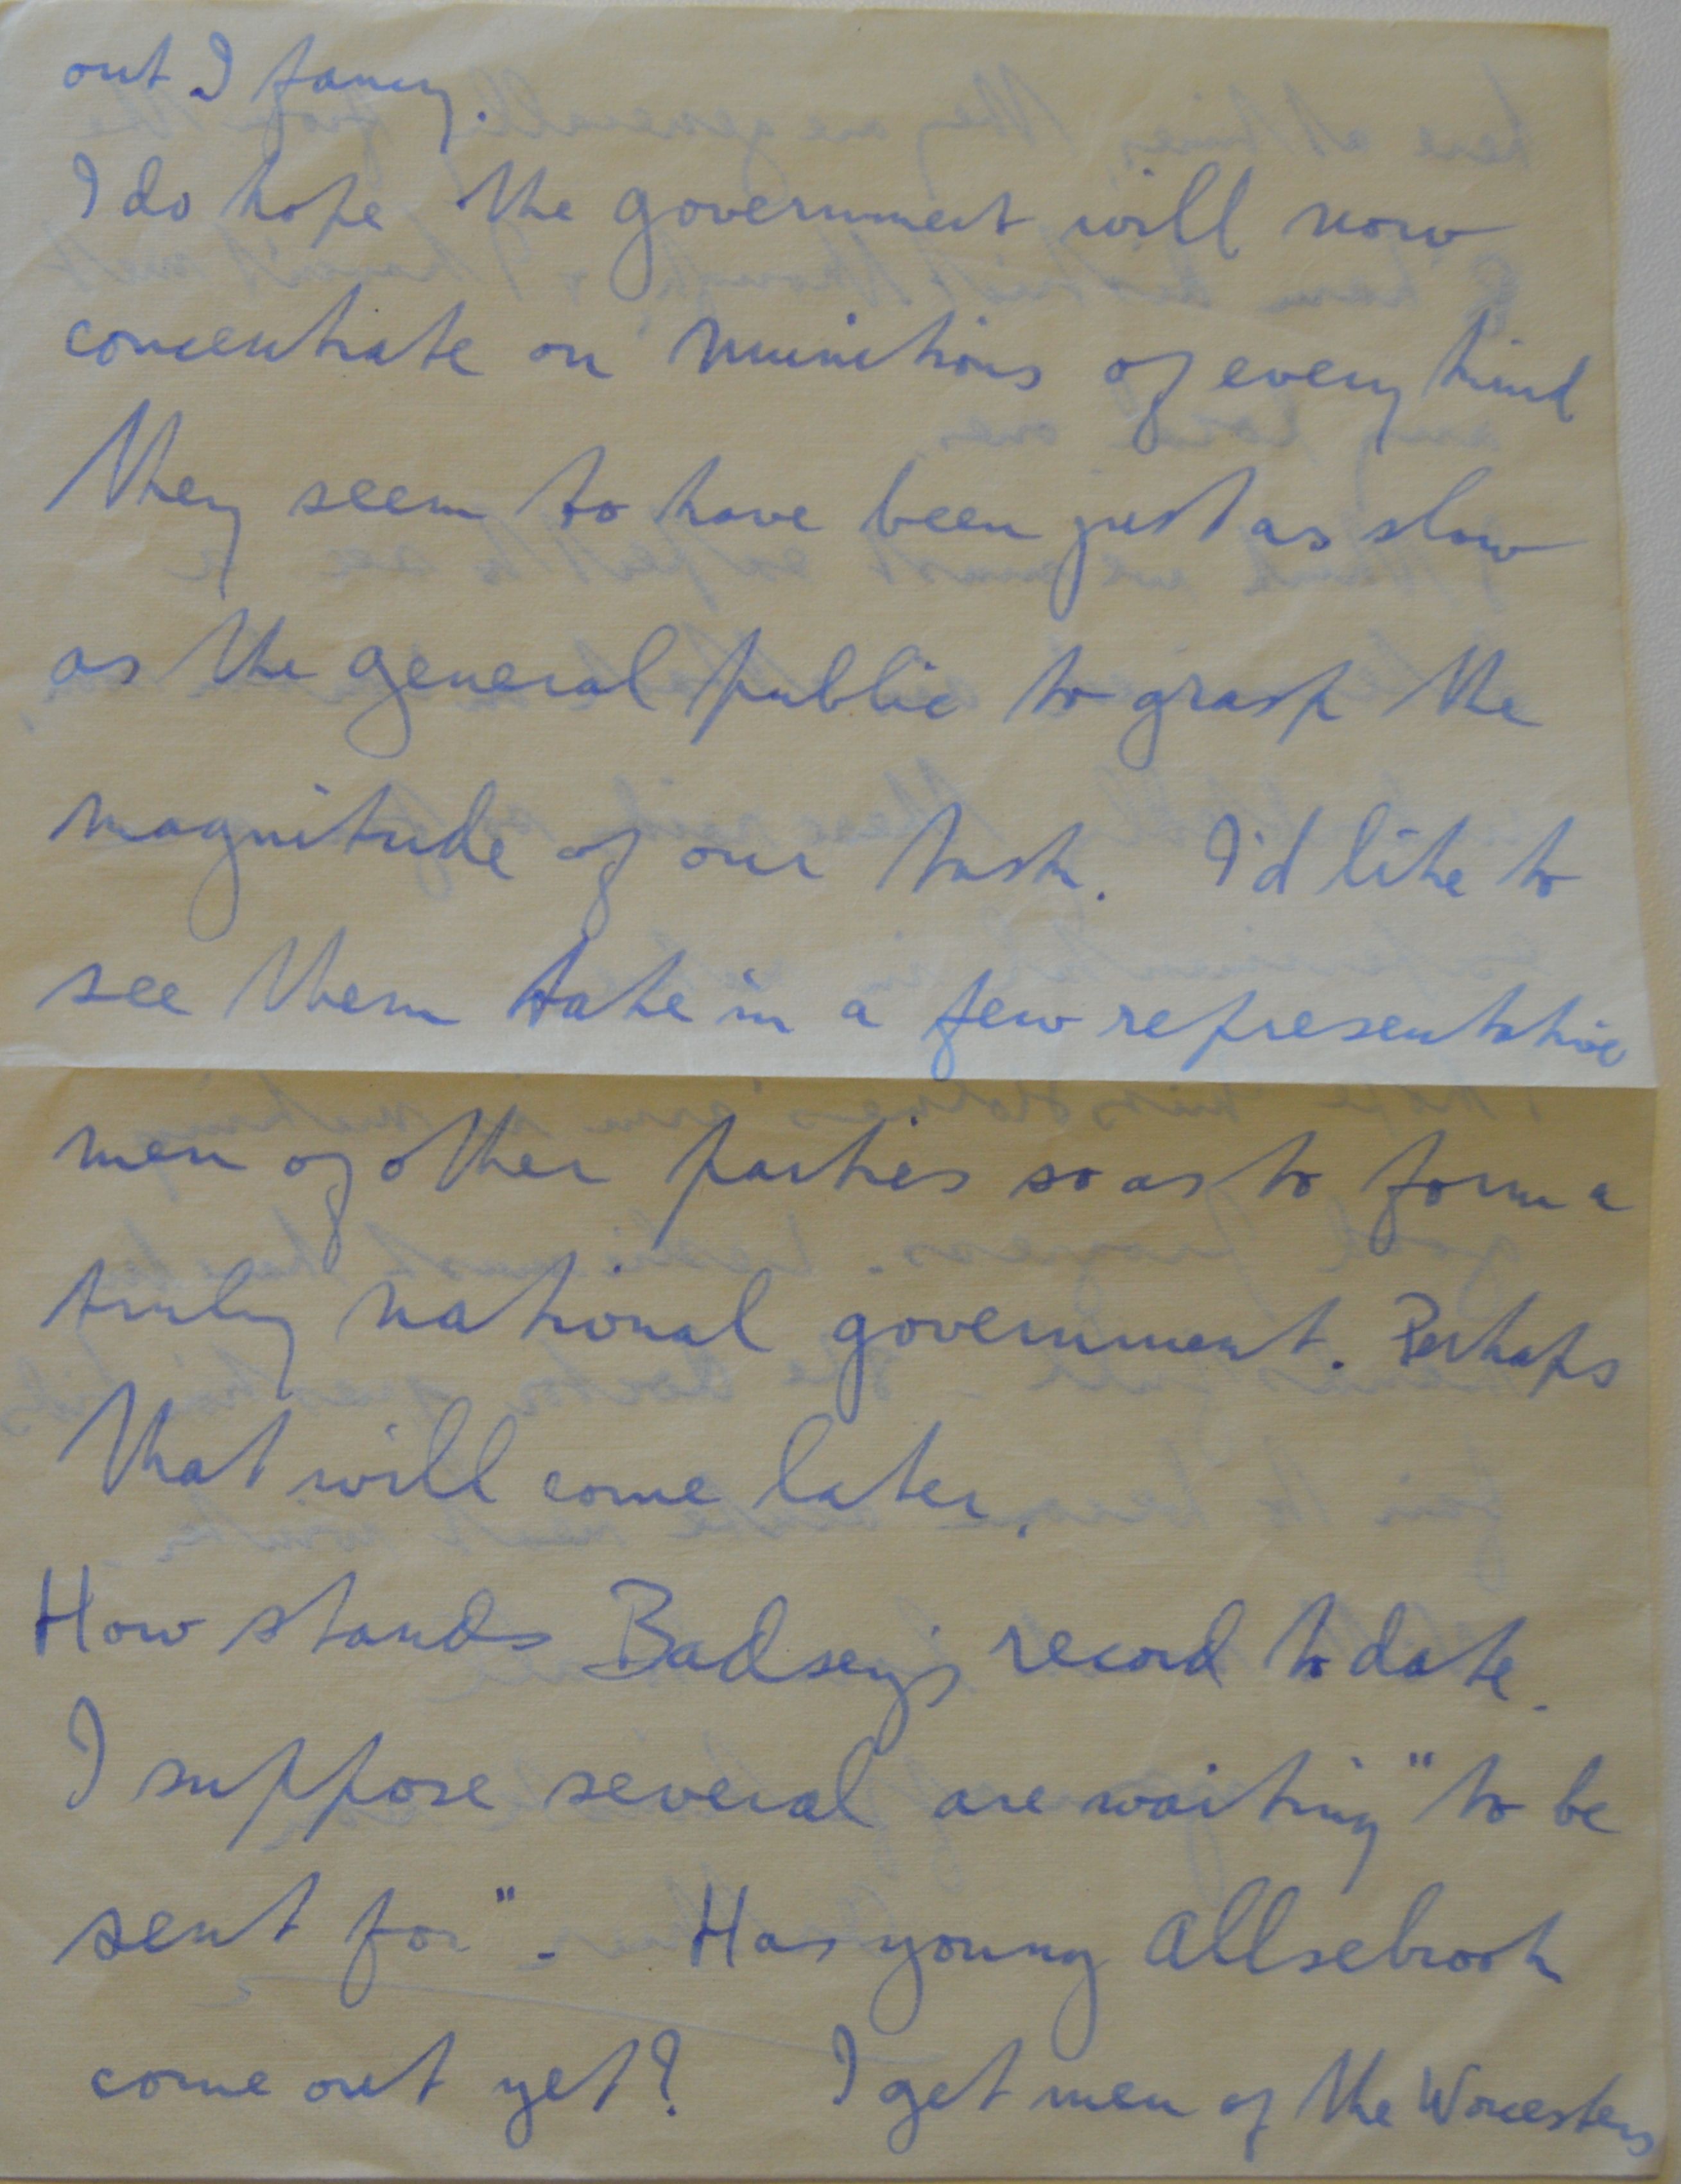 out I fancy.
I do hope the government will now
concentrate on munitions of every kind
They seem to have been just as slow
as the general public to grasp the
magnitude of our task. I'd like to
see them take in a few representative
men of other parties so as to form a
truly national government. Perhaps
that will come later.
How stands Badsey's record to date.
I suppose several are waiting "to be
sent for". Has young Allsebrook
come out yet? I get men of the Worcesters